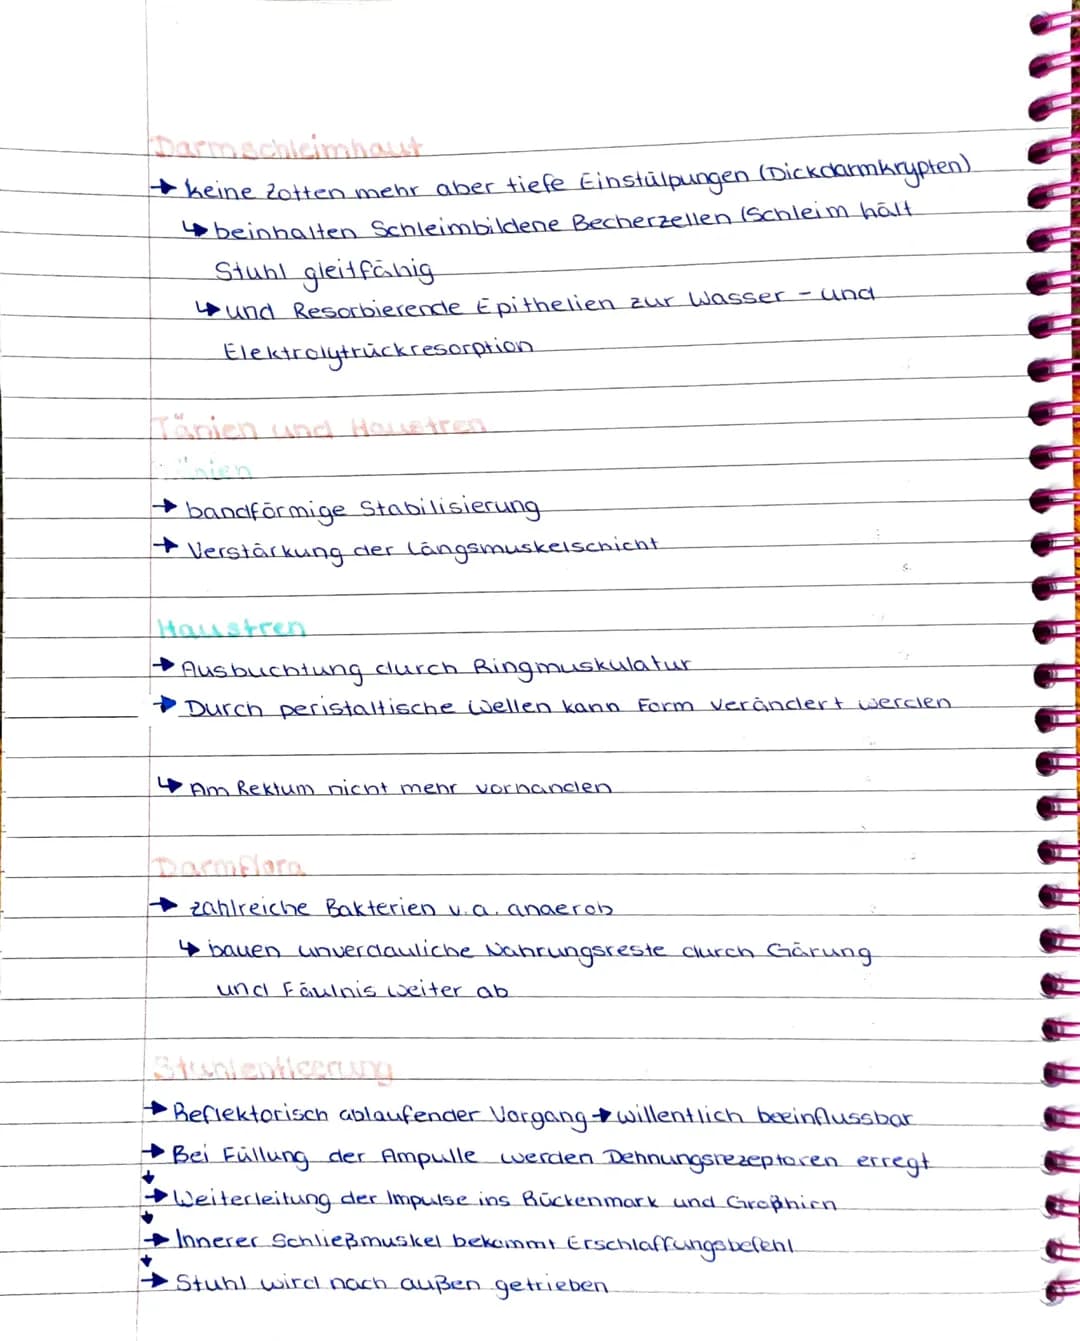 Darmschleimhaut
→ keine Zotten mehr aber tiefe Einstülpungen (Dickdarmkrypten)
↳ beinhalten Schleimbildene Becherzellen (Schleim hält
Stuhl gleitfähig
↳ und Resorbierende Epithelien zur Wasser - und
Elektrolytrückresorption
Tänien und Haustren
Tänien
→ bandförmige Stabilisierung
→ Verstärkung der Längsmuskelschicht
Haustren
→ Ausbuchtung durch Ringmuskulatur
→ Durch peristaltische Wellen kann Form verändert werden
↳ Am Rektum nicht mehr vorhanden
Darmflora
→ zahlreiche Bakterien v.a. anaerob
↳ bauen unverdauliche Nahrungsreste durch Gärung
und Fäulnis weiter ab
Stuhlentleerung
→ Reflektorisch ablaufender Vorgang → willentlich beeinflussbar
→ Bei Füllung der Ampulle werden Dehnungsrezeptoren erregt
→ Weiterleitung der Impulse ins Rückenmark und Großhirn
→ Innerer Schließmuskel bekommt Erschlaffungsbefehl
→ Stuhl wird nach außen getrieben